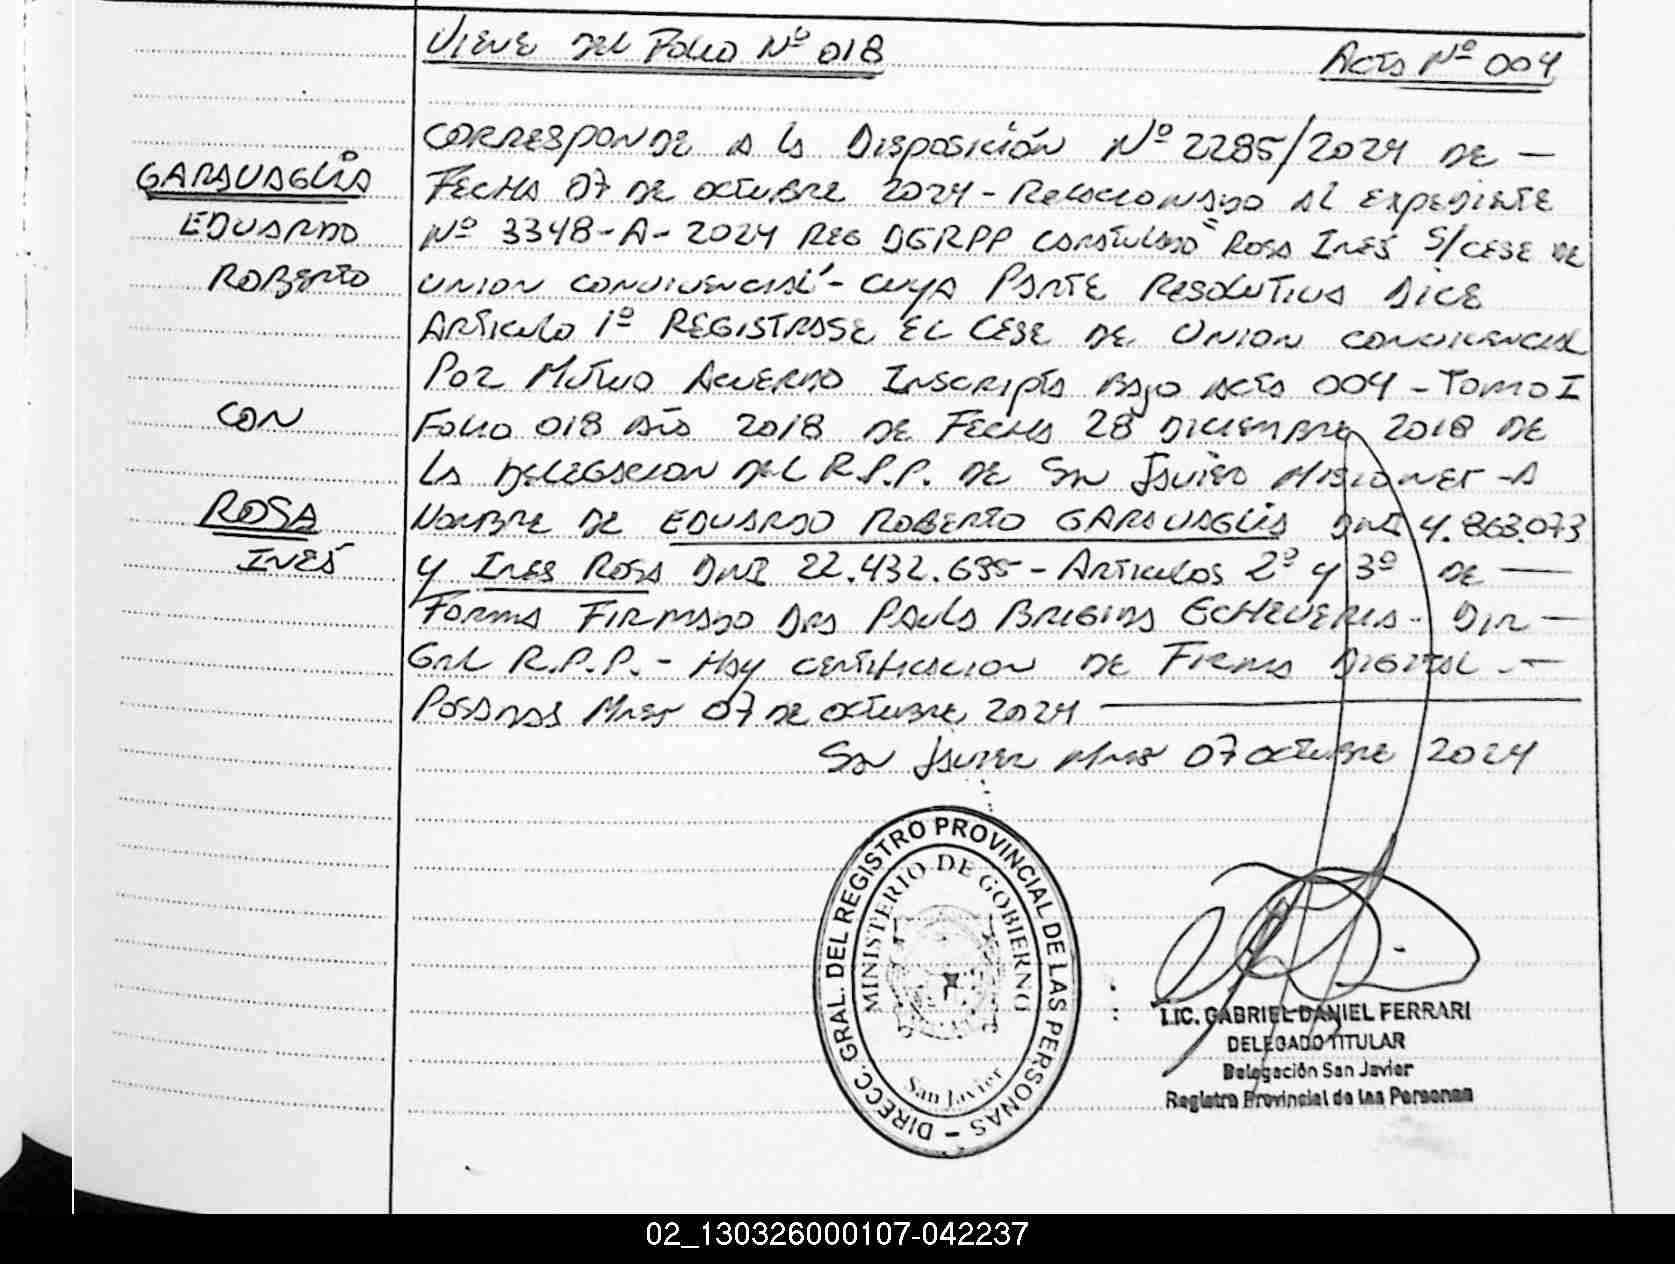 VIENE DEL FOLIO Nº 018
ACTA Nº 004
CORRESPONDE A LA DISPOSICIÓN Nº 2285/2024 DE —
GARAVAGLIA
FECHA 07 DE OCTUBRE 2024 - RELACIONADO AL EXPEDIENTE
EDUARDO
Nº 3348-A-2024 REG DGRPP CARATULADO "ROSA INES S/CESE DE
ROBERTO
UNION CONVIVENCIAL" - CUYA PARTE RESOLUTIVA DICE
ARTICULO 1º REGISTRASE EL CESE DE UNION CONVIVENCIAL
POR MUTUO ACUERDO INSCRIPTA BAJO ACTA 004 - TOMO I
CON
FOLIO 018 AÑO 2018 DE FECHA 28 DICIEMBRE 2018 DE
LA DELEGACION DEL R.P.P. DE SAN JAVIER MISIONES - A
ROSA
NOMBRE DE EDUARDO ROBERTO GARAVAGLIA DNI 4.863.073
INES
Y INES ROSA DNI 22.432.695 - ARTICULOS 2º y 3º DE —
FORMA FIRMADO DRA PAULA BRIGIDA ECHEVERIA - DIR —
GRL R.P.P. - HAY CERTIFICACION DE FIRMA DIGITAL . —
POSADAS MNES 07 DE OCTUBRE 2024 —
SAN JAVIER MNES 07 OCTUBRE 2024
DIRECC. GRAL. DEL REGISTRO PROVINCIAL DE LAS PERSONAS -
MINISTERIO DE GOBIERNO
San Javier
LIC. GABRIEL DANIEL FERRARI
DELEGADO TITULAR
Delegación San Javier
Registro Provincial de las Personas
02_130326000107-042237